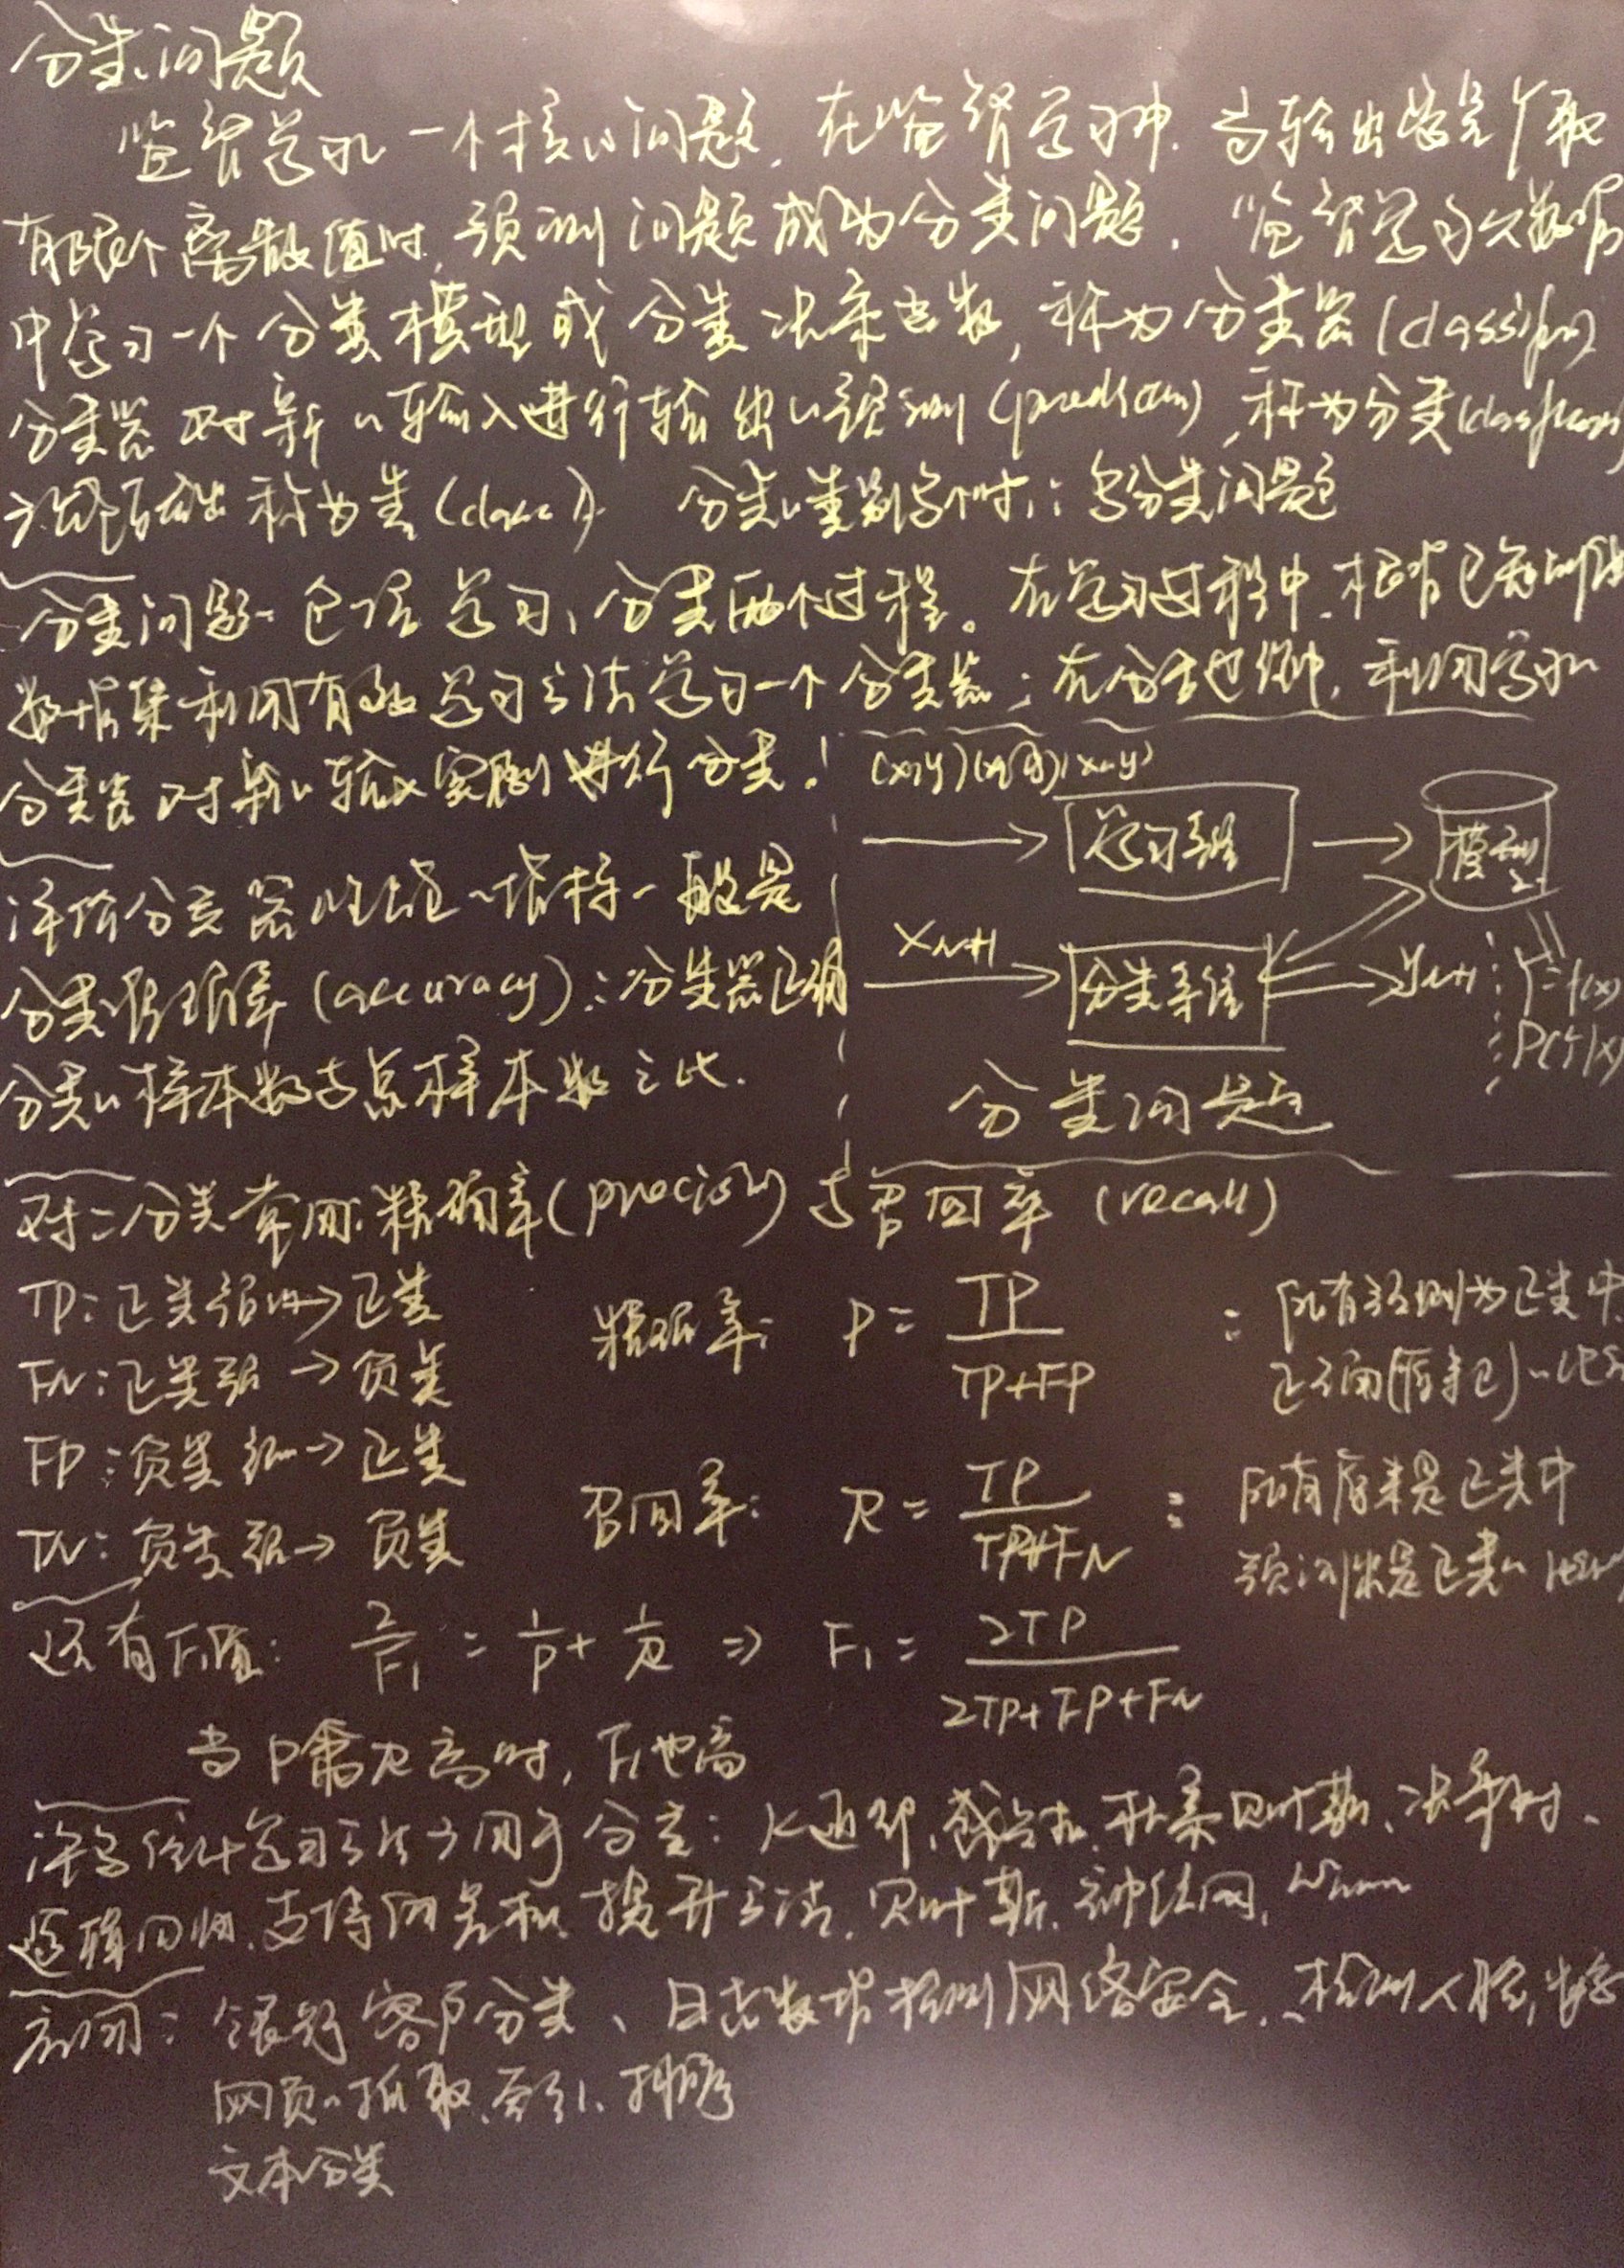 分类问题
监督学习的一个核心问题，在监督学习中，当输出变量Y取
有限个离散值时，预测问题成为分类问题．监督学习从数据
中学习一个分类模型或分类决策函数，称为分类器(classifier)
分类器对新的输入进行输出的预测(prediction)，称为分类(classification)
可能的输出称为类(class)．分类的类别多个时：多分类问题
分类问题包括学习、分类两个过程。在学习过程中，根据已知训练
数据集利用有效学习方法学习一个分类器；在分类过程中，利用学习的
分类器对新的输入实例进行分类．
(x,y)
学习系统
模型
评价分类器性能的指标一般是
分类准确率(accuracy)：分类器正确
分类的样本数与总样本数之比．
XN+1
分类系统
YN+1
Y=f(x)
P(Y|X)
分类问题
对二分类常用精确率(precision)与召回率(recall)
TP：正类预测→正类
FN：正类预→负类
FP：负类预→正类
TN：负类预→负类
精确率： P = TP / TP+FP ：所有预测为正类中
正确(原来正)的比例
召回率： R = TP / TP+FN ：所有原来是正类中
预测出是正类的
还有F1值： 2/F1 = 1/P + 1/R ⇒ F1 = 2TP / 2TP+FP+FN
当P高R高时，F1也高
许多统计学习方法可用于分类：K近邻、感知机、朴素贝叶斯、决策树、
逻辑回归、支持向量机、提升方法、贝叶斯、神经网、
应用：银行客户分类、日志数据检测网络安全、检测人脸，
网页的抓取、索引、排序
文本分类